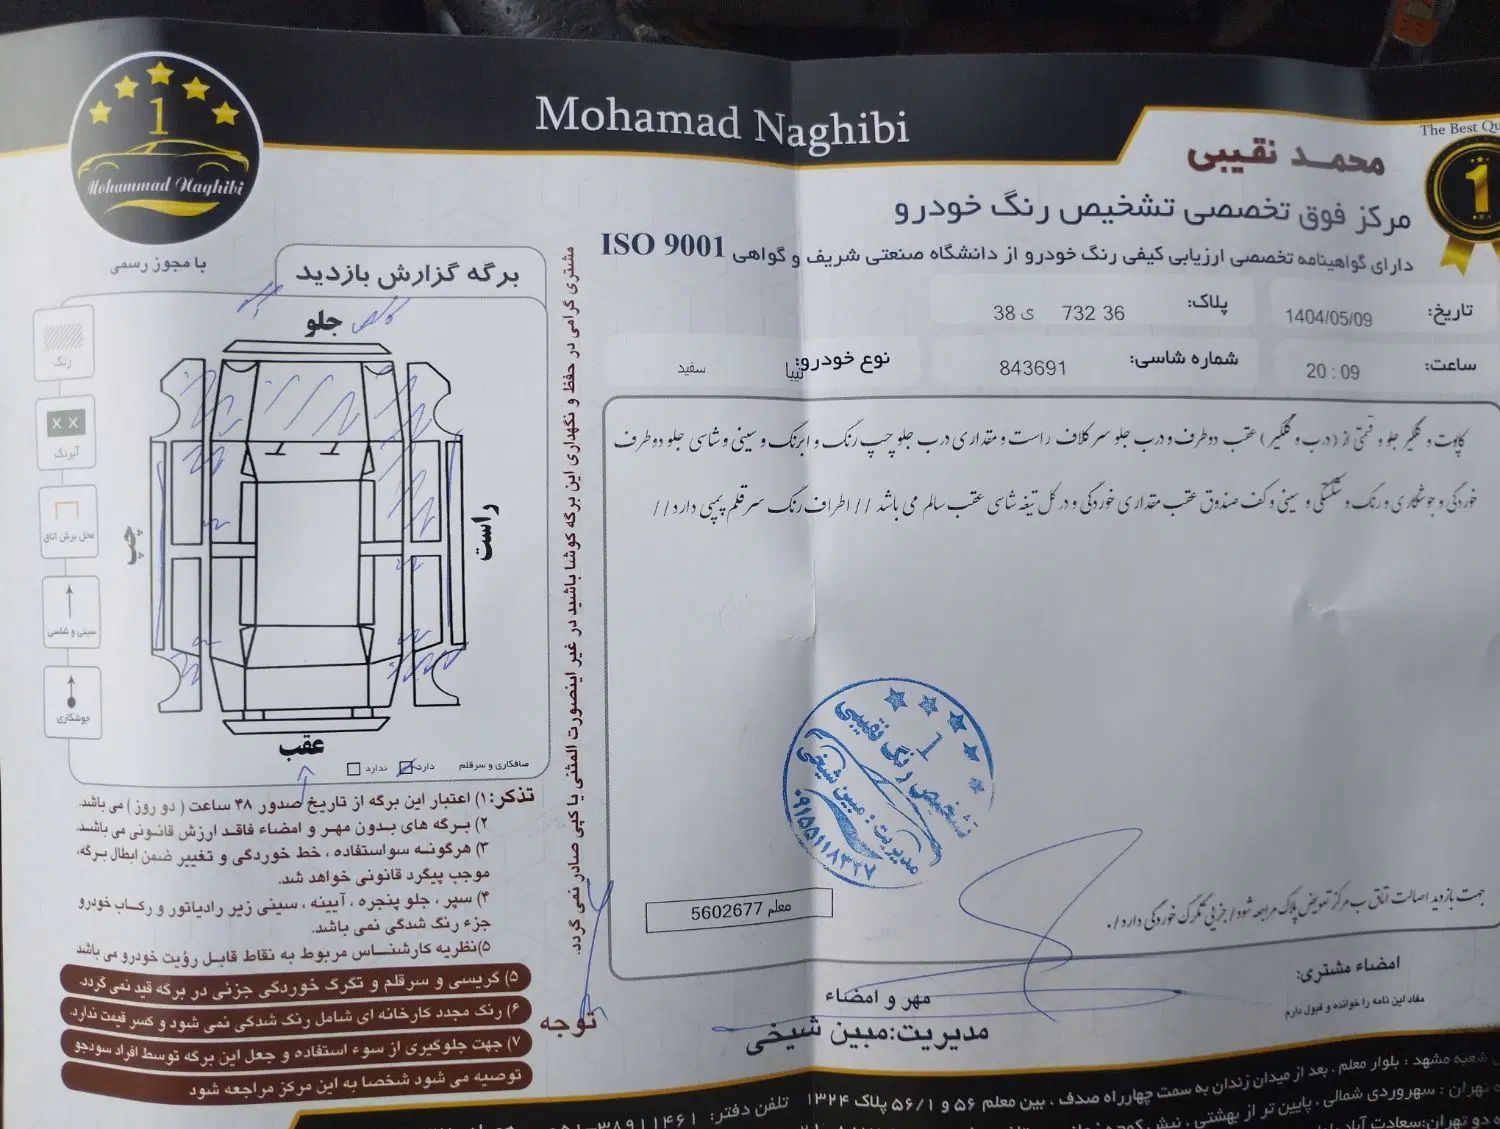 Mohamad Naghibi
The Best Qu
1
Mohammad Naghibi
با مجوز رسمی
محمد نقیبی
1
مرکز فوق تخصصی تشخیص رنگ خودرو
دارای گواهینامه تخصصی ارزیابی کیفی رنگ خودرو از دانشگاه صنعتی شریف و گواهی ISO 9001
تاریخ: 1404/05/09
پلاک: 36 732 ی 38
ساعت: 20 : 09
شماره شاسی: 843691
نوع خودرو: تیبا سفید
کاپوت و گلگیر جلو و قسمتی از (درب و گلگیر) عقب دو طرف و درب جلو سر کلاف راست و مقداری درب جلو چپ رنگ و ابرنگ و سینی و شاسی جلو دو طرف
خوردگی و جوشکاری و رنگ و شکستگی و سینی و کف صندوق عقب مقداری خوردگی و در کل تیغه شاسی عقب سالم می باشد // اطراف رنگ سر قلم پمپی دارد //
جهت بازدید اصالت اتاق ب مرکز تعویض پلاک مراجعه شود / جزیی تگرگ خوردگی دارد /.
معلم 5602677
تشخیص رنگ نقیبی
1
مدیریت: مبین شیخی
۰۹۱۵۵۱۱۸۳۲۷
امضاء مشتری:
مفاد این نامه را خوانده و قبول دارم
مهر و امضاء
مدیریت:مبین شیخی
برگه گزارش بازدید
جلو
راست
چپ
عقب
رنگ
X X
آبرنگ
محل برش اتاق
سینی و شاسی
جوشکاری
صافکاری و سرقلم دارد ندارد
مشتری گرامی در حفظ و نگهداری این برگه کوشا باشید در غیر اینصورت المثنی یا کپی صادر نمی گردد.
توجه
تذکر: ۱) اعتبار این برگه از تاریخ صدور ۴۸ ساعت ( دو روز) می باشد.
۲) برگه های بدون مهر و امضاء فاقد ارزش قانونی می باشد.
۳) هرگونه سواستفاده ، خط خوردگی و تغییر ضمن ابطال برگه،
موجب پیگرد قانونی خواهد شد.
۴) سپر ، جلو پنجره ، آیینه ، سینی زیر رادیاتور و رکاب خودرو
جزء رنگ شدگی نمی باشد.
۵)نظریه کارشناس مربوط به نقاط قابل رؤیت خودرو می باشد
۵) گریسی و سرقلم و تگرگ خوردگی جزئی در برگه قید نمی گردد.
۶) رنگ مجدد کارخانه ای شامل رنگ شدگی نمی شود و کسر قیمت ندارد.
۷) جهت جلوگیری از سوء استفاده و جعل این برگه توسط افراد سودجو
توصیه می شود شخصا به این مرکز مراجعه شود
شعبه مشهد : بلوار معلم ، بعد از میدان زندان به سمت چهارراه صدف ، بین معلم ۵۶ و ۵۶/۱ پلاک ۱۳۲۴ تلفن دفتر: ۰۵۱-۳۸۹۱۱۴۶۱
تهران : سهروردی شمالی ، پایین تر از بهشتی ، نبش
دو تهران:سعادت آباد